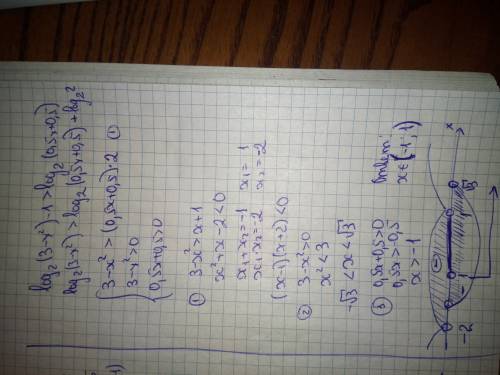 log₂(3-x²)-1>log₂(0,5x+0,5)
log₂(3-x²)>log₂(0,5x+0,5)+log₂2
{ 3-x²>(0,5x+0,5)·2 ①
3-x²>0
0,5x+0,5>0
① 3-x²>x+1
x²+x-2<0
x₁+x₂=-1 x₁=1
x₁x₂=-2 x₂=-2
(x-1)(x+2)<0
② 3-x²>0
x²<3
-√3<x<√3
③ 0,5x+0,5>0
0,5x>-0,5
x>-1
Ответ:
x∈(-1;1)
-2 -1 √3 x